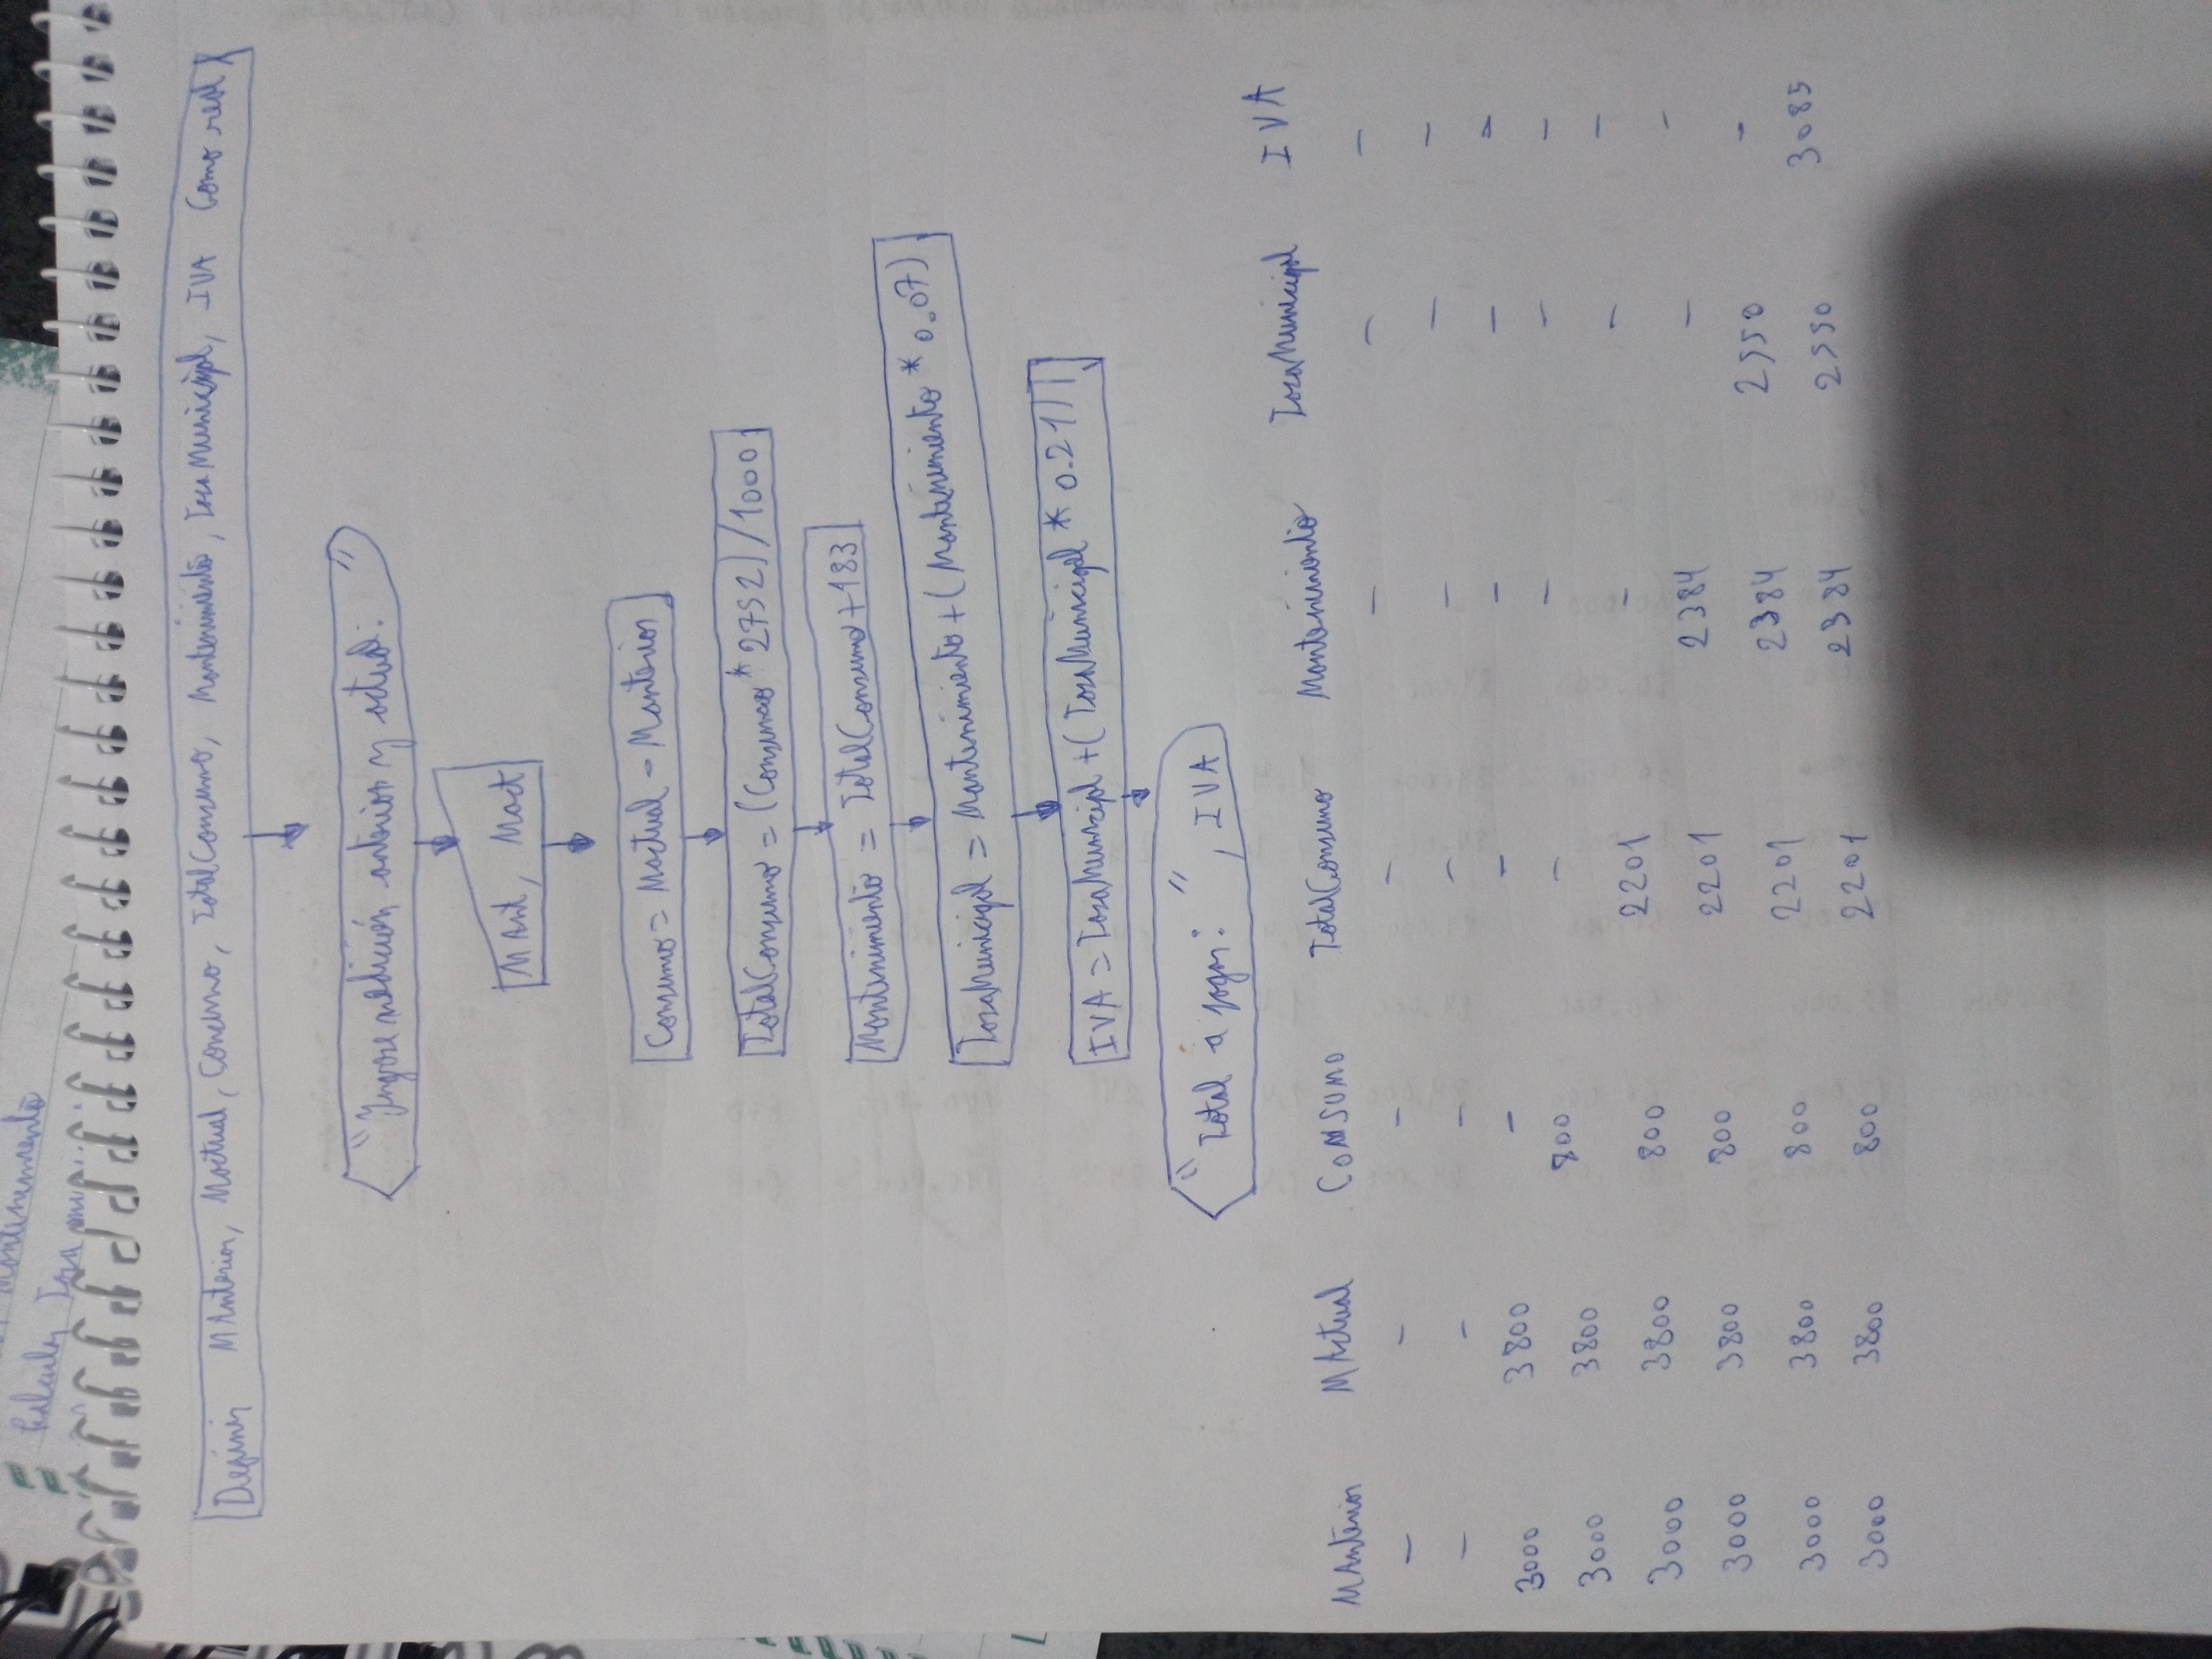 Mantenimiento
Calcular Tasa
Definir MAnterior, Mactual, Consumo, TotalConsumo, Mantenimiento, TasaMunicipal, IVA Como real
"Ingrese medición anterior y actual: "
MAnt, Mact
Consumo = Mactual - Manterior
TotalConsumo = (Consumo * 2752) / 1000
Mantenimiento = TotalConsumo + 183
TasaMunicipal = Mantenimiento + (Mantenimiento * 0.07)
IVA = TasaMunicipal + (TasaMunicipal * 0.21)
"Total a pagar: ", IVA
MAnterior MActual CONSUMO TotalConsumo Mantenimiento TasaMunicipal IVA
- - - - - - -
- - - - - - -
3000 3800 - - - - -
3000 3800 800 - - - -
3000 3800 800 2201 - - -
3000 3800 800 2201 2384 - -
3000 3800 800 2201 2384 2550 -
3000 3800 800 2201 2384 2550 3085